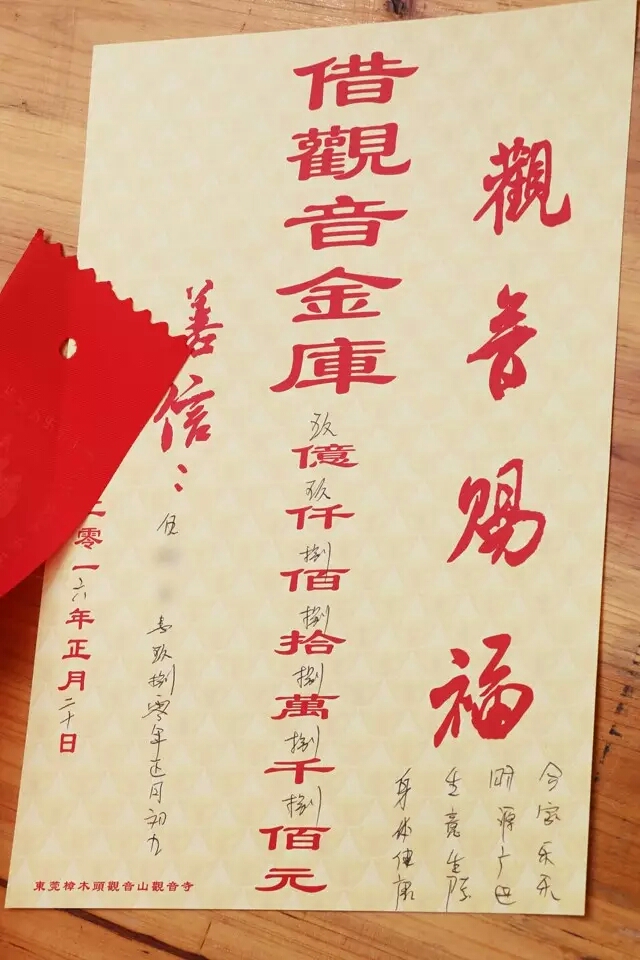 觀音賜福
合家乐
财源广进
生意
身体健康
借觀音金庫玖億玖仟捌佰捌拾捌萬捌千捌佰元
善信：伍
壹玖捌零年正月初九
二零一六年正月二十日
東莞樟木頭觀音山觀音寺